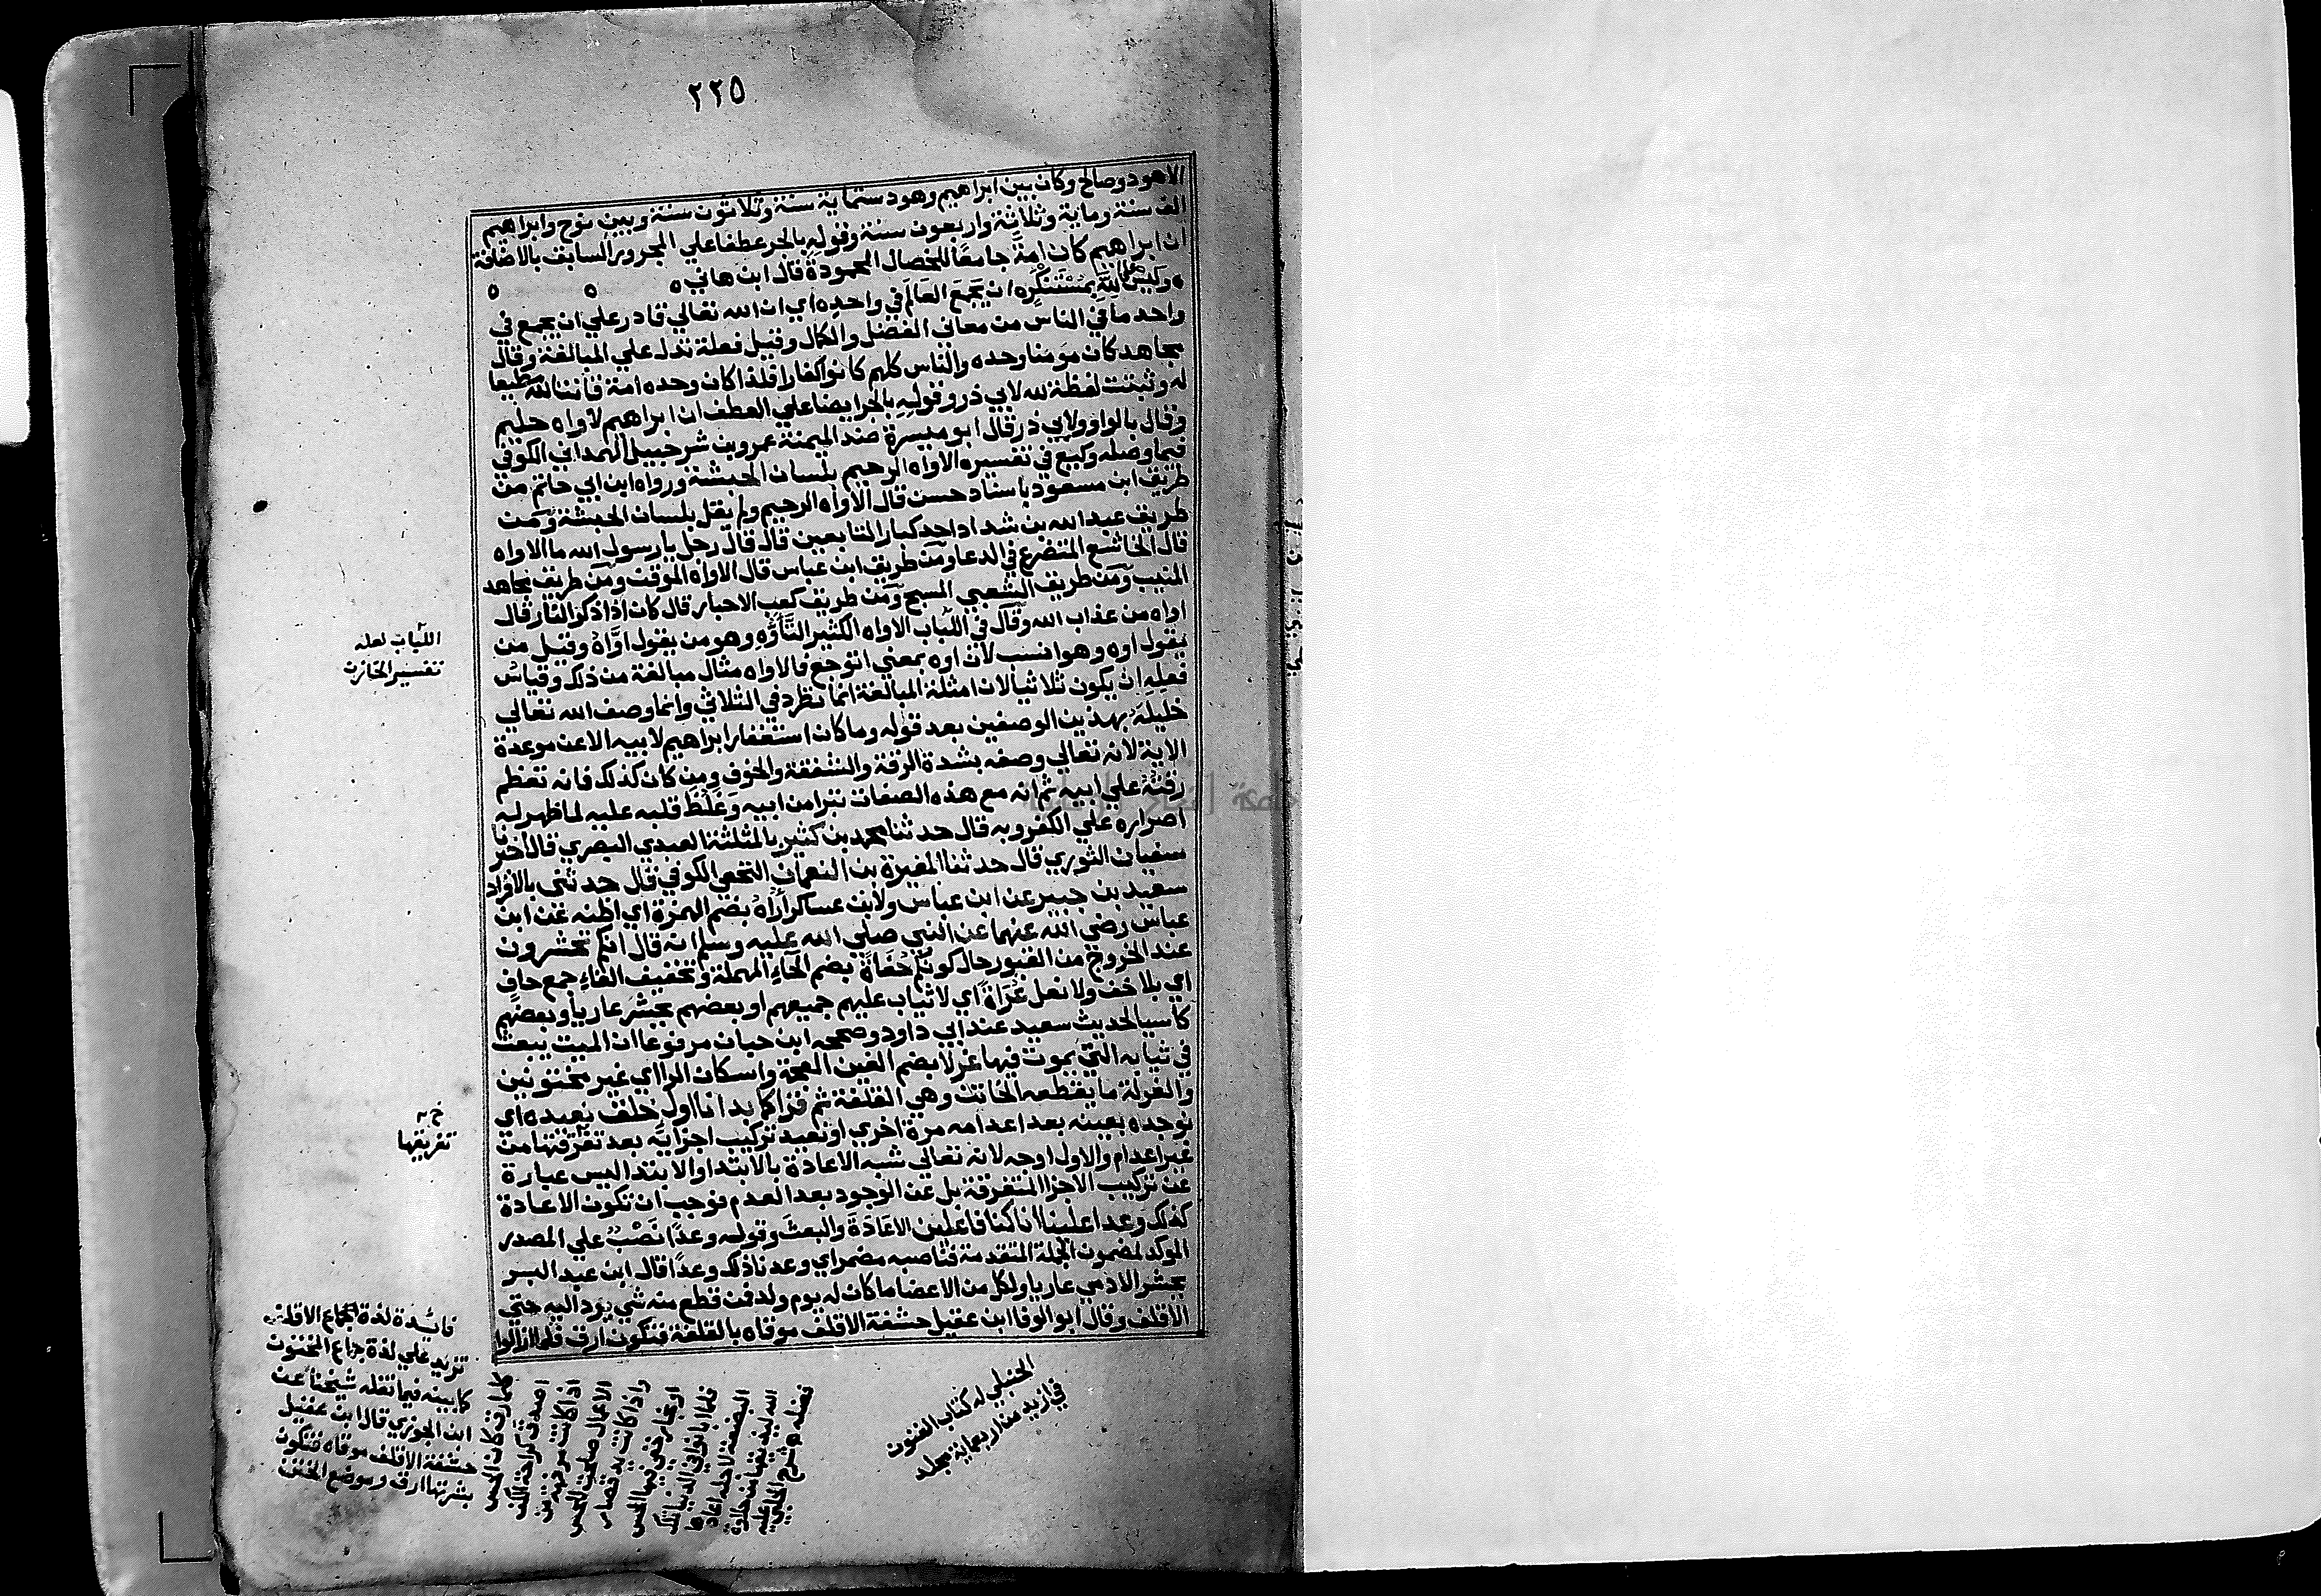 ٢٢٥
الاهود وصالح وكان بين ابراهيم وهود ستماية سنة وثلاثون سنة وبين نوح وابراهيم
الف سنة وماية وثلاثة واربعون سنة وقوله بالجر عطفا علي المجرور السابق بالاضافة
ان ابراهيم كان امة جامعا للخصال المحمودة قال ابن هاني ه
ه وليس لله بمستنكر ه ان يجمع العالم في واحد ه اي ان الله تعالي قادر علي ان يجمع في
واحد ما في الناس من معاني الفضل والكمال وقيل فعلة تدل علي المبالغة وقال
مجاهد كان مومنا وحده والناس كلهم كانوا كفارا فلذا كان وحده امة قانتا لله مطيعا
له وثبتت لفظة لله لابي ذر وقوله بالجر ايضا علي العطف ان ابراهيم لاواه حليم
وقال بالواو ولابي ذر قال ابو ميسرة ضد الميمنة عمرو بن شرحبيل الهمداني الكوفي
فيما وصله وكيع في تفسيره الاواه الرحيم بلسان الحبشة ورواه ابن ابي حاتم من
طريق ابن مسعود باسناد حسن قال الاواه الرحيم ولم يقل بلسان الحبشة ومن
طريق عبد الله بن شداد احد كبار التابعين قال قال رجل يا رسول الله ما الاواه
قال الخاشع المتضرع في الدعا ومن طريق ابن عباس قال الاواه الموقن ومن طريق مجاهد
المنيب ومن طريق الشعبي المسبح ومن طريق كعب الاحبار قال كان اذا ذكر النار قال
اواه من عذاب الله وقال في اللباب الاواه الكثير التأوه وهو من يقول اواه وقيل من
يقول اوه وهو انسب لان اوه بمعني اتوجع فالاواه مثال مبالغة من ذلك وقياس
فعله ان يكون ثلاثيا لان امثلة المبالغة انما تطرد في الثلاثي وانما وصف الله تعالي
خليله بهذين الوصفين بعد قوله وما كان استغفار ابراهيم لابيه الا عن موعدة
الاية لانه تعالي وصفه بشدة الرقة والشفقة والخوف ومن كان كذلك فانه تعظم
رقته علي ابيه ثم انه مع هذه الصفات تبرا من ابيه وغلظ قلبه عليه لما ظهر له
اصراره علي الكفر وبه قال حدثنا محمد بن كثير بالمثلثة العبدي البصري قال اخبرنا
سفيان الثوري قال حدثنا المغيرة بن النعمان النخعي الكوفي قال حدثني بالافراد
سعيد بن جبير عن ابن عباس ولابن عساكر أراه بضم الهمزة اي اظنه عن ابن
عباس رضي الله عنهما عن النبي صلي الله عليه وسلم انه قال انكم تحشرون
عند الخروج من القبور حال كونكم حفاة بضم الحاء المهملة وتخفيف الفاء جمع حاف
اي بلا خف ولا نعل عراة اي لا ثياب عليهم جميعهم او بعضهم يحشر عاريا وبعضهم
كاسيا لحديث سعيد عند ابي داود وصححه ابن حبان مرفوعا ان الميت يبعث
في ثيابه التي يموت فيها غرلا بضم الغين المعجمة واسكان الرا اي غير مختونين
والغرلة ما يقطعه الخاتن وهي القلفة ثم قرا كما بدانا اول خلق نعيده اي
نوجده بعينه بعد اعدامه مرة اخري او نعيد تركيب اجزايه بعد تفرقتها من
غير اعدام والاول اوجه لانه تعالي شبه الاعادة بالابتدا والابتدا ليس عبارة
عن تركيب الاجزا المتفرقة بل عن الوجود بعد العدم فوجب ان تكون الاعادة
كذلك وعدا علينا انا كنا فاعلين الاعادة والبعث وقوله وعدا نصب علي المصدر
الموكد لمضمون الجملة المتقدمة فناصبه مضمر اي وعدنا ذلك وعدا قال ابن عبد البر
يحشر الادمي عاريا ولكل من الاعضا ما كان له يوم ولد فمن قطع منه شي يرد اليه حتي
الاقلف وقال ابو الوفا ابن عقيل حشفة الاقلف موقاة بالقلفة فتكون ارق فلما ازالوا
اللباب لعله
تفسير الخازن
خ
تفريقها
فائدة لذة جماع الاقلف
تزيد علي لذة جماع المختون
كما بينه فيما نقله شيخنا عن
ابن الجوزي قال ابن عقيل
حشفة الاقلف موقاه فتكون
بشرتها ارق وموضع الحس
كلما رق كان الحس
اصدق كراحة الكف
اذا كانت مرفهة من
الاعمال صلحت للحس
واذا كانت يد قصار
او نجار خفي فيها الحس
فلما ابانوا في الدنيا تلك
البضعة لاجله اعادها
الله ليذيقها من حلاوة
فضله ه شرح الحلبي عليه
الحنبلي له كتاب الفنون
في ازيد من اربعماية مجلد